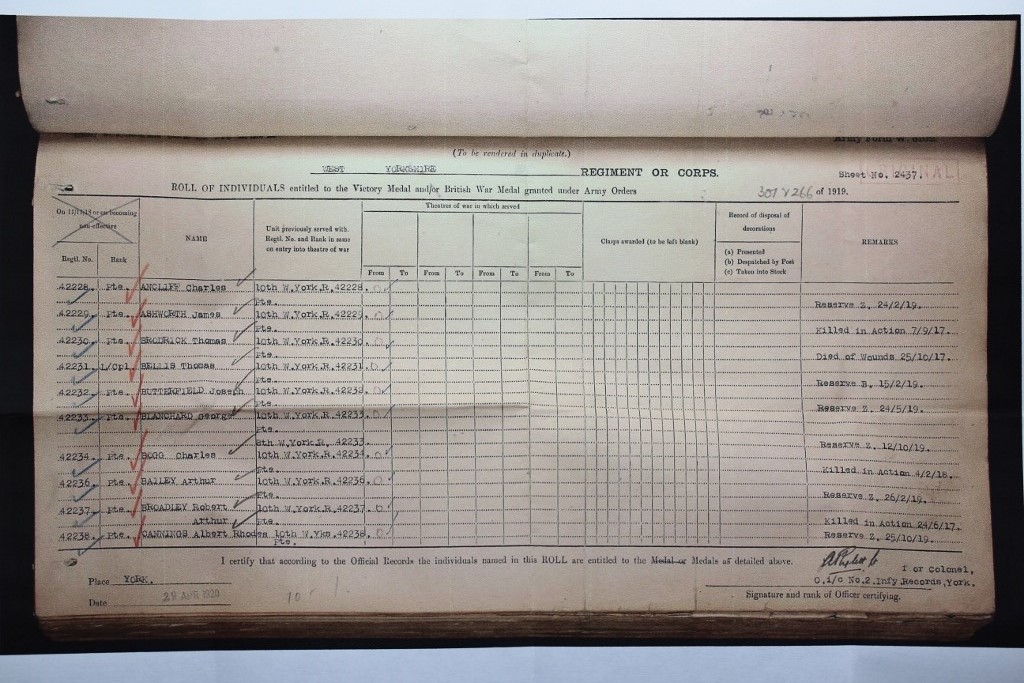 (To be rendered in duplicate.)
WEST YORKSHIRE REGIMENT OR CORPS. Sheet No. 2437.
ROLL OF INDIVIDUALS entitled to the Victory Medal and/or British War Medal granted under Army Orders 301 & 266 of 1919.
On 11/11/18 or on becoming non-effective
Regtl. No. Rank
NAME
Unit previously served with. Regtl. No. and Rank in same on entry into theatre of war
Theatres of war in which served
From To From To From To From To
Clasps awarded (to be left blank)
Record of disposal of decorations
(a) Presented
(b) Despatched by Post
(c) Taken into Stock
REMARKS
42228. Pte. ANCLIFF Charles 10th W.York.R.42228.
Pte. Reserve Z. 24/2/19.
42229. Pte. ASHWORTH James 10th W.York.R.42229.
Pte. Killed in Action 7/9/17.
42230. Pte. BRODRICK Thomas 10th W.York.R.42230.
Pte. Died of Wounds 25/10/17.
42231. L/Cpl. BELLIS Thomas 10th W.York.R.42231.
Pte. Reserve B. 15/2/19.
42232. Pte. BUTTERFIELD Joseph 10th W.York.R.42232.
Pte. Reserve Z. 24/5/19.
42233. Pte. BLANCHARD George 10th W.York.R.42233.
Pte.
8th W.York.R. 42233. Reserve Z. 12/10/19.
42234. Pte. BOGG Charles 10th W.York.R.42234.
Pte. Killed in Action 4/2/18.
42236. Pte. BAILEY Arthur 10th W.York.R.42236.
Pte. Reserve Z. 26/2/19.
42237. Pte. BROADLEY Robert 10th W.York.R.42237.
Arthur Pte. Killed in Action 24/6/17.
42238. Pte. CANNINGS Albert Rhodes 10th W.Yks.42238. Reserve Z. 25/10/19.
Pte.
I certify that according to the Official Records the individuals named in this ROLL are entitled to the Medal or Medals as detailed above.
Place YORK. for Colonel,
O.i/c No.2.Infy.Records,York.
Date 29 APR 1920
Signature and rank of Officer certifying.